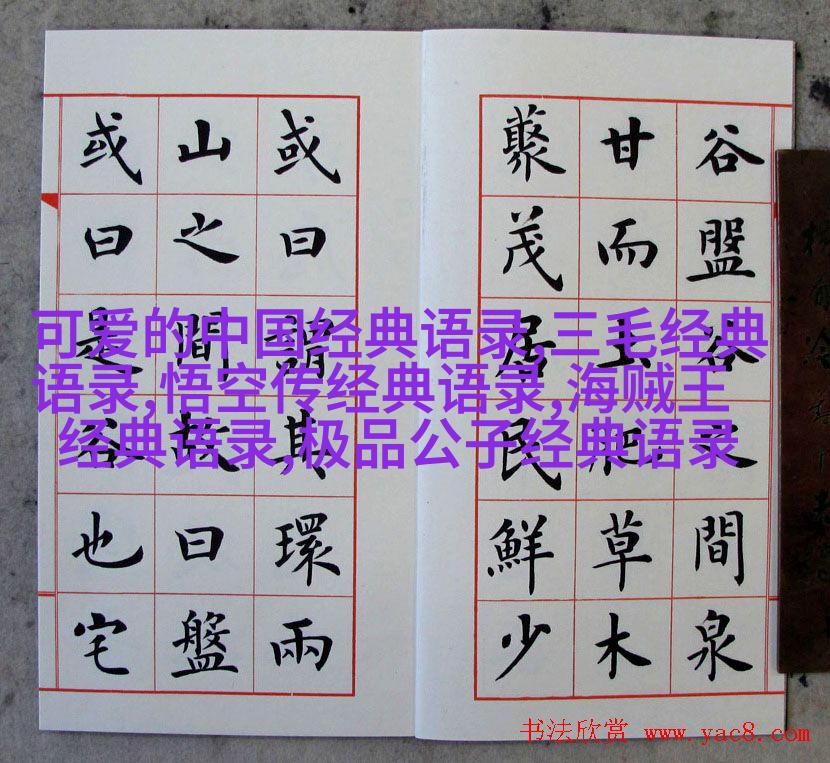 谷盤谷之間泉
甘而土肥草木
藂茂居民鮮少
或曰謂其環兩
山之間故曰盤
或曰是谷也宅
可爱的中国经典语录,三毛经典
语录,悟空传经典语录,海贼王
经典语录,极品公子经典语录
书法欣赏 www.yac8.com